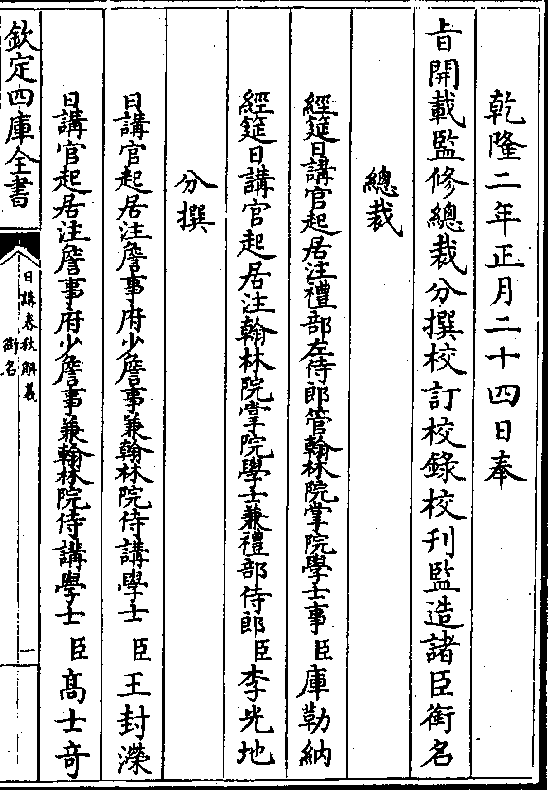 乾隆二年正月二十四日奉
旨開載監修總裁分撰校訂校錄校刊監造諸臣銜名
總裁
經筵日講官起居注禮部左侍郎管翰林院掌院學士事臣庫勒納
經筵日講官起居注翰林院掌院學士兼禮部侍郎臣李光地
分撰
日講官起居注詹事府少詹事兼翰林院侍講學士臣王封濚
日講官起居注詹事府少詹事兼翰林院侍講學士臣高士奇
欽定四庫全書
日講春秋解義
銜名
一